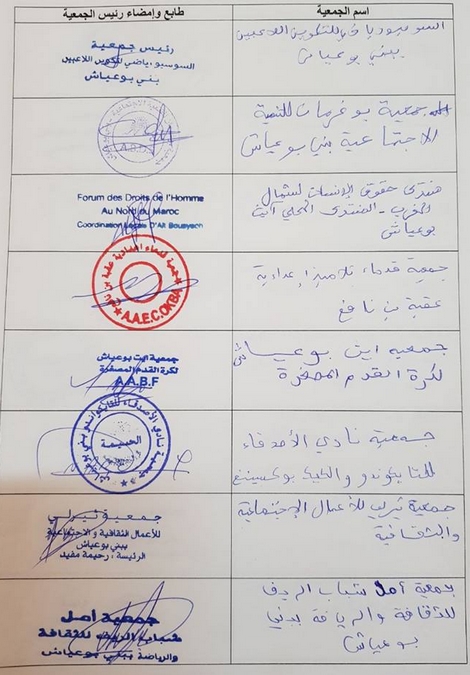 اسم الجمعية
طابع وإمضاء رئيس الجمعية
السوسيورياضي للتكوين اللاعبين
ببني بوعياش
رئيس جمعية
السوسيو رياضي لتكوين اللاعبين
بني بوعياش
جمعية بوغرمان للتنمية
الاجتماعية بني بوعياش
منتدى حقوق الإنسان لشمال
المغرب - المنتدى المحلي آيث
بوعياش
Forum des Droits de l'Homme
Au Nord du Maroc
Coordination Locale D'Ait Bouayach
جمعية قدماء تلاميذ إعدادية
عقبة بن نافع
A.A.E.C.OKBA
جمعية ايت بوعياش
لكرة القدم المصغرة
جمعية ايت بوعياش
لكرة القدم المصغرة
A.A.B.F
جمعية نادي الأصدقاء
للتايكوندو والكيك بوكسينغ
جمعية نادي الأصدقاء للتايكواندو بني بوعياش
الحسيمة
جمعية ثيرلي للأعمال الإجتماعية
والثقافية
جمعية ثيرلي
للأعمال الثقافية والاجتماعية
ببني بوعياش
الرئيسة : رحيمة مفيد
جمعية أمل شباب الريف
للثقافة والرياضة ببني
بوعياش
جمعية أمل
شباب الريف للثقافة
والرياضة ببني بوعياش